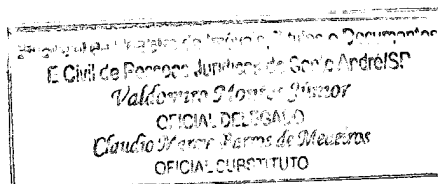 de Imóveis, Títulos e Documentos
E Civil de Pessoas Jurídicas de Santo André/SP
Valdomiro Montes Júnior
OFICIAL DELEGADO
Claudio de Medeiros
OFICIAL SUBSTITUTO